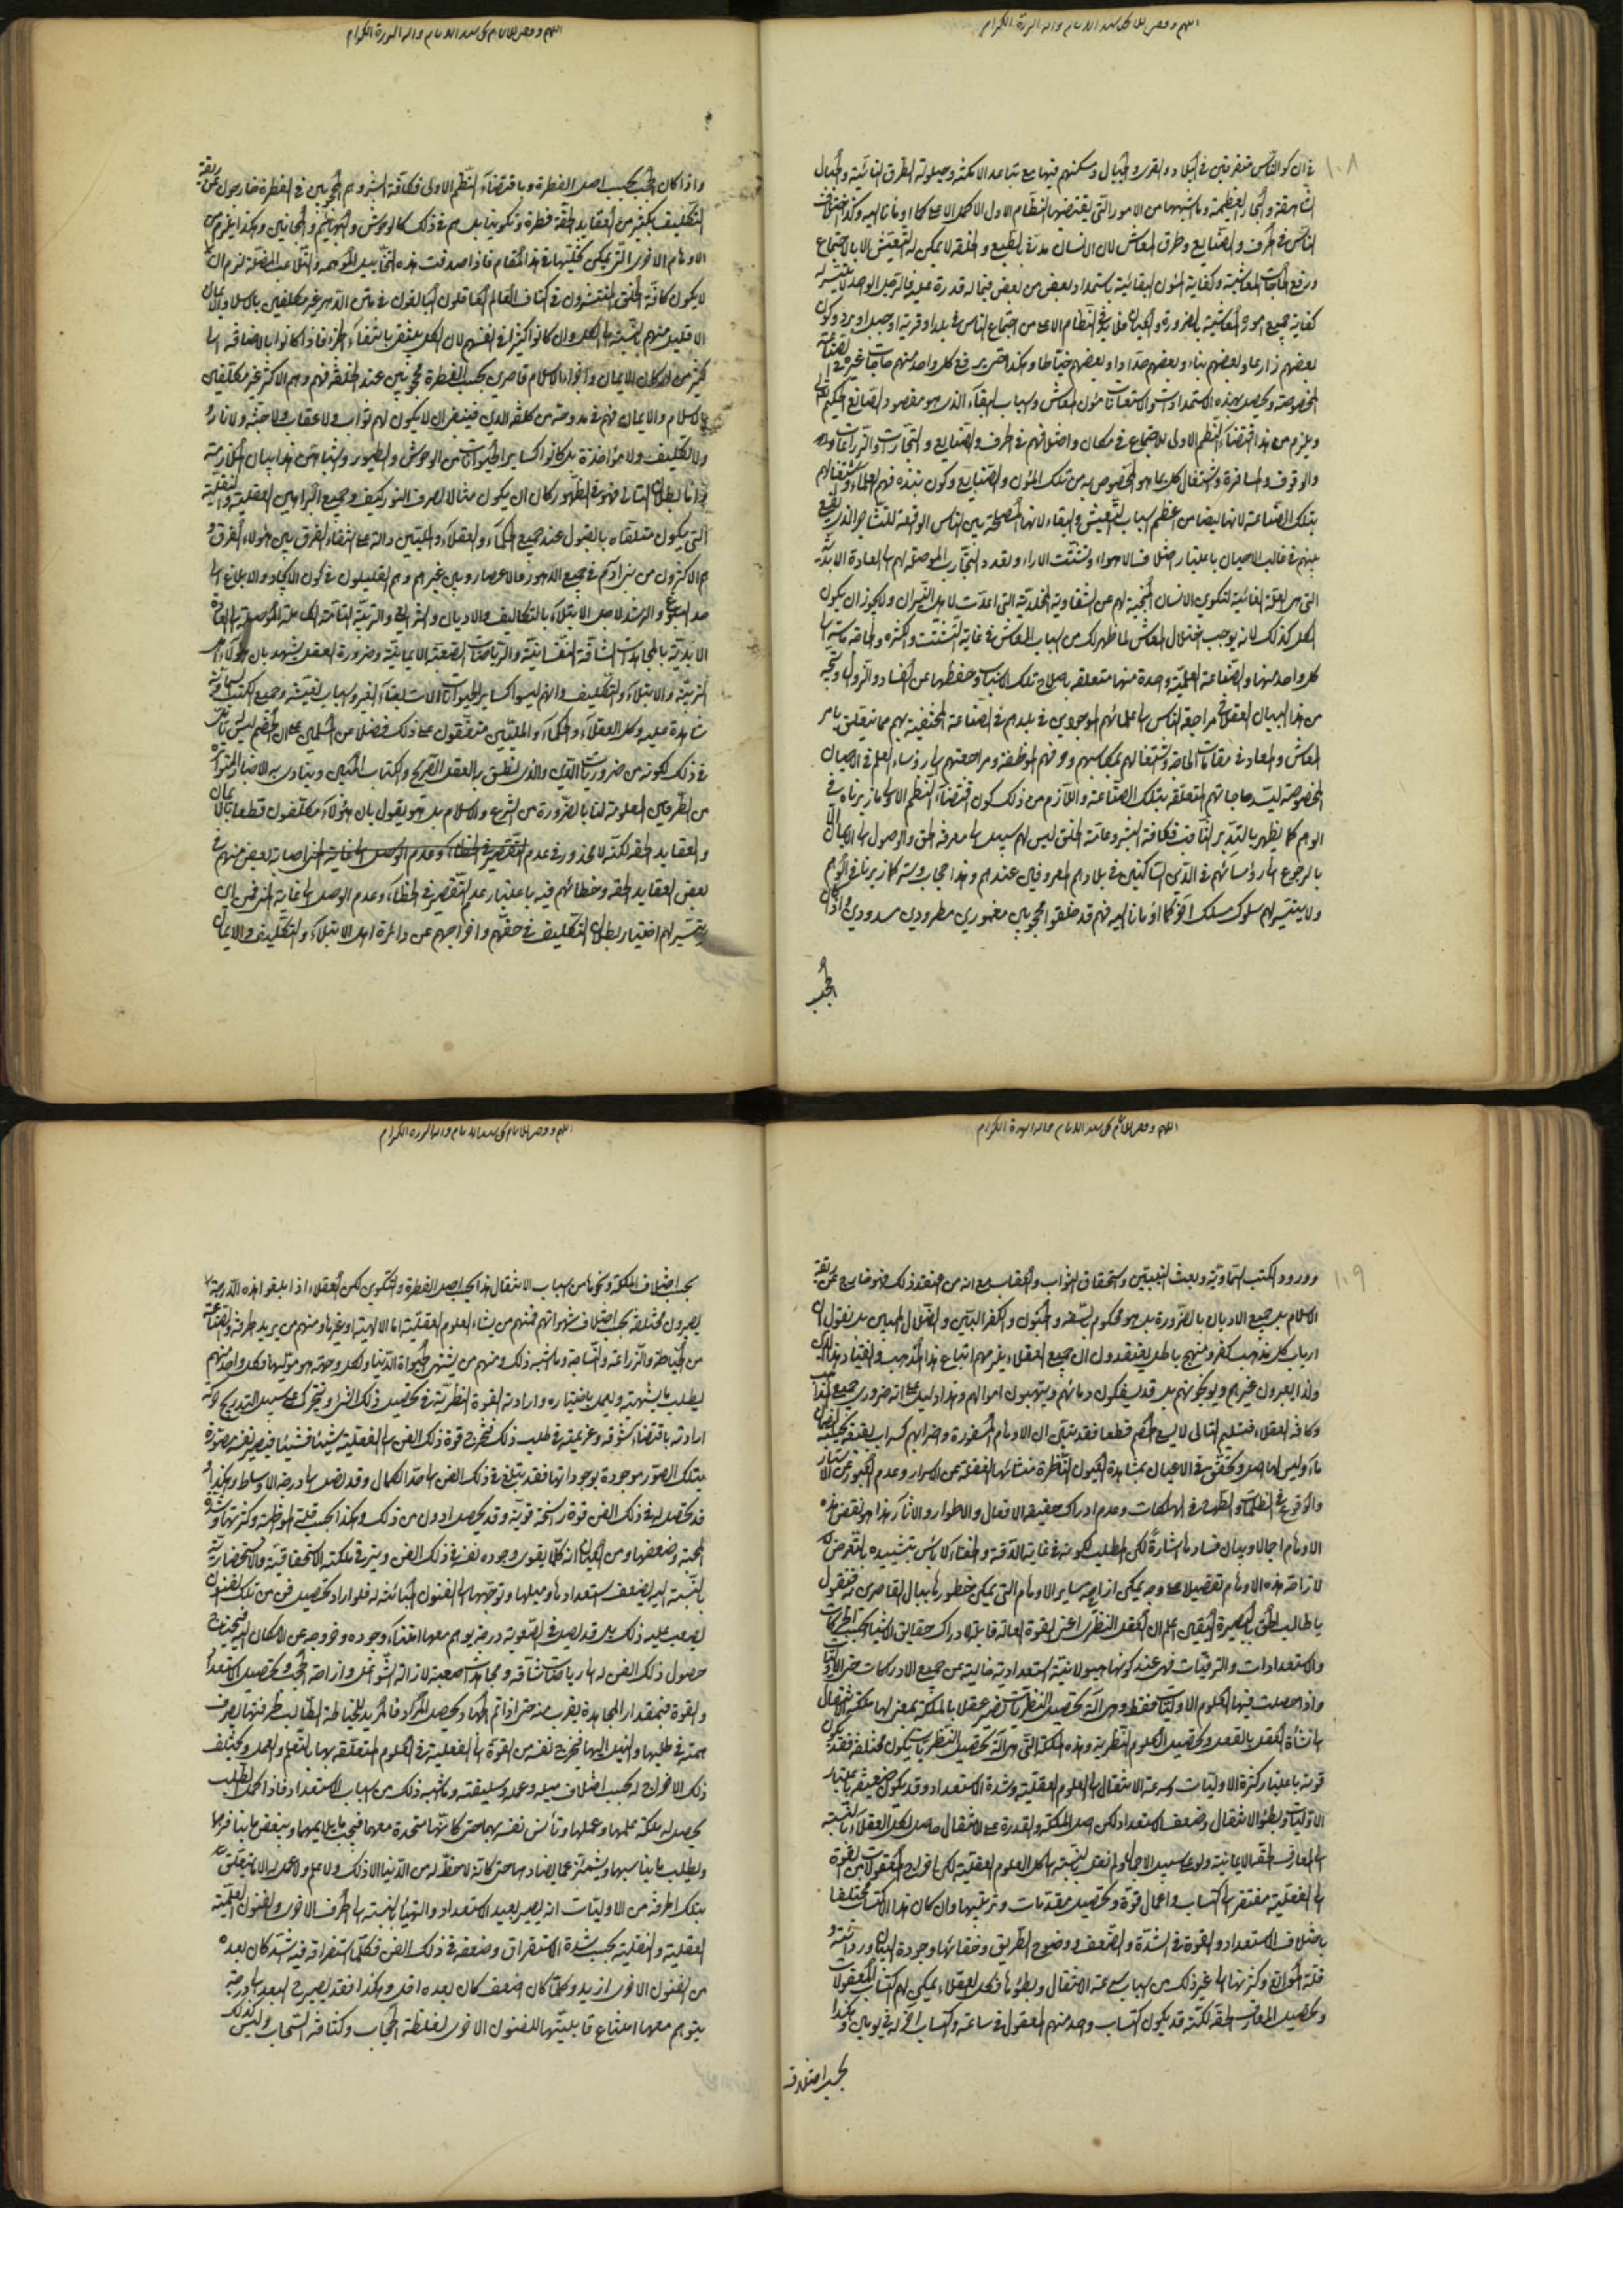 في ان كون الناس متفرقين في البلاد والقرى والجبال ومسكنهم فيها مع تباعد الامكنة وحيلولة الطرق النائية والجبال
الشاهقة والبحار العظيمة وما اشبهها من الامور التي يقتضيها النظام الاول الاكمل الاعلى كما اومأنا اليه وكذا اختلاف
الناس في الحرف والصنايع وطرق المعاش لان الانسان مدني بالطبع والخلقة لا يمكن له التعيش الا بالاجتماع
ورفع الحاجات المعاشية وكفاية المؤن البقائية باستمداد بعض من بعض فيما له قدرة عليه فالرجل الواحد لا يتيسر له
كفاية جميع امور المعيشة بالضرورة والعيان فلا بد في النظام الاعلى من اجتماع الناس في بلد او قرية او جبل او بر وكون
بعضهم زارعا وبعضهم بناء وبعضهم حدادا وبعضهم خياطا وهكذا حتى يرفع كل واحد منهم حاجات غيره في الصناعة
المخصوصة ويحصل بهذه الاستمدادات والاستعانات مؤن المعاش واسباب البقاء الذي هو مقصود الصانع الحكيم
ويلزم من هذا اقتضاء النظم الاولى للاجتماع في مكان واختلافهم في الحرف والصنايع والتجارات والزراعات
والوقوف والمسافرة واشتغال كل بما هو المخصوص به من تلك المؤن والصنايع وكون نبذة منهم العلماء واشتغالهم
بتلك الصناعة لانها ايضا من اعظم اسباب التعيش والبقاء لانها المصلحة بين الناس الواقعة للتشاجر الذي يقع
بينهم في غالب الاحيان باعتبار اختلاف الاهواء وتشتت الاراء ولعدد التجارب الموصلة لهم الى السعادة الابدية
التي هي العلة الغائية لتكوين الانسان المنجية لهم عن الشقاوة المخلدية التي اعدت لاهل النيران ولا يجوز ان يكون
الكل كذلك لانه يوجب اختلال المعاش لما ظهر لك من اسباب المعاش في غاية التشتت والكثرة والحاجة ماسة الى
كل واحد منها والصناعة العلمية واحدة منها متعلقة باصلاح تلك الاسباب وحفظها عن الفساد والزوال ونتيجة
من هذا البيان العقلاني مراجعة الناس الى علمائهم الموجودين في بلدهم في الصناعة المختصة بهم مما يتعلق بامر
المعاش والمعاد في مقامات الحاجة واشتغالهم بمكاسبهم وحرفهم الموظفة ومراجعتهم الى رؤساء العلم في الاحيان
المخصوصة لسد حاجاتهم المتعلقة بتلك الصناعة واللازم من ذلك كون اقتضاء النظم الاولى ما زبرناه في
الوهم كما يظهر بالتدبر الثاقب فكافة البشر وعامة الخلق ليس لهم سبيل الى معرفة الحق والوصول الى الايمان الا
بالرجوع الى رؤسائهم في الدين الساكنين في بلادهم المعروفين عندهم وهذا حجاب وستر كما زبرنا في الوهم
ولا يتيسر لهم سلوك مسلك آخر كما اومأنا اليه فهم قد خلقوا محجوبين مغمورين مطرودين مسدودين واذا كان
الحجب
واذا كان الحجب بحسب اصل الفطرة وباقتضاء النظم الاولى فكافة البشر وهم المحجوبين في الفطرة خارجون عن ربقة
التكليف بكثير من العقايد الحقة فطرة وتكوينا بل هم في ذلك كالوحوش والبهائم والمجانين وهكذا يلزم من
الاوهام الاخرى التي يمكن تخيلها في هذا المقام فاذا صدقت هذه التخاييل الموهمة والتلاعب المضلة لزم ان
لا يكون كافة الخلق المنتشرون في اكناف العالم العاقلون البالغون في متن الدهر غير مكلفين بالاسلام والايمان
الا قليل منهم بالنسبة الى الكل وان كانوا كثيرا في انفسهم لان الكل ينتفي بانتفاء الجزء فاذا كانوا بالاضافة الى
كثير من اركان الايمان وانوار الاسلام قاصرين بحسب الفطرة محجوبين عند الخلقة فهم وهم الاكثر غير مكلفين
بالاسلام والايمان فهم في مندوحة من كلفة الدين فينبغي ان لا يكون لهم ثواب ولا عقاب ولا جنة ولا نار
ولا تكليف ولا مؤاخذة بل كانوا كساير الحيوانات من الوحوش والطيور والبهائم هذا بيان الملازمة
واما بطلان التالي فهو في الظهور كان ان يكون مثالا لصرف النور كيف وجميع البراهين العقلية والنقلية
التي يكون متلقاه بالقبول عند جميع الحكماء والعقلاء والمليين دالة على انتفاء الفرق بين هؤلاء الفرق و
هم الاكثرون من بني آدم في جميع الدهور والاعصار وبين غيرهم وهم القليلون في كون الايجاد والابلاغ الى
حد البلوغ والرشد لاجل الابتلاء بالتكاليف والاديان والشرايع والتربية التامة الكاملة الموصلة الى السعادة
الابدية بالمجاهدات الشاقة النفسانية والرياضات الصعبة الايمانية وضرورة العقل يشهد بان هؤلاء اهل
التربية والابتلاء والتكليف وانهم ليسوا كساير الحيوانات آلات لبقاء الغير واسباب لتعيشه وجميع الكتب السماوية
شاهدة عليه وكل العقلاء والحكماء والمليين متفقون على ذلك فضلا من المسلمين على ان الخصم ليس يناكر
في ذلك لكونه من ضروريات الدين والذي نطق به العقل الصريح والكتاب المبين وينادي به الاخبار المتواترة
من الطرفين المعلومة لنا بالضرورة من الشرع والاسلام بل هو يقول بان هؤلاء مكلفون قطعا بالايمان
والعقايد الحقة لكنه لا محذور في عدم التقصير في الخطاء وعدم الوصول الى الغاية اصابة بعض منهم في
بعض العقايد الحقة وخطائهم فيه باعتبار عدم التقصير في الخطاء وعدم الوصول الى الغاية
يتيسر لهم اختيار بطلان التكليف في حقهم واخراجهم عن دائرة اهل الابتلاء والتكليف والايمان
وورود الكتب السماوية وبعث النبيين واستحقاق الثواب والعقاب مع انه من اعتقد ذلك فهو خارج عن ربقة
الاسلام بل جميع الاديان بالضرورة بل هو محكوم بالسفه والجنون والكفر البين والضلال المبين بل نقول ان
ارباب كل مذهب كفر ومنهج باطل يعتقدون ان جميع العقلاء يلزمهم اتباع هذا المذهب والانقياد لهذا الدين
ولذا يعيرون غيرهم ويوبخونهم بل قد يسفكون دمائهم وينهبون اموالهم وهذا دليل على انه ضروري جميع المذاهب
وكافة العقلاء فتسليم التالي لا يسع الخصم قطعا فقد تبين ان الاوهام المسفورة واضرابهم كسراب بقيعة يحسبه الظمآن
ماء وليس لها اصل وتحقق في الاعيان بمشاهدة العيون الناظرة منشائها الغفلة عن الاسرار وعدم العبور عن الاستار
والوقوع في الظلمات والظهور في الهلكات وعدم ادراك حقيقة الافعال والاطوار والآثار هذا هو نقض هذه
الاوهام اجمالا وبيان فسادها اشارة لكن المطلب لكونه في غاية الدقة والخفاء لا بأس بتشييده بالتعرض
لازاحة هذه الاوهام تفصيلا على وجه يمكن ازاحة ساير الاوهام التي يمكن خطورها ببال القاصرين فنقول
يا طالب الحق والبصيرة واليقين اعلم ان العقل النظري اعني القوة العالة قابلة لادراك حقايق الاشياء بحسب الحركات
والاستعدادات والترقيات فهي عند كونها هيولانية استعدادية خالية من جميع الادراكات حتى الاوليات
واذا حصلت فيها العلوم الاوليات فقط وهي آلة تحصيل النظريات تصير عقلا بالملكة بمعنى لها ملكة الانتقال
الى نشأة العقل بالفعل وتحصيل العلوم النظرية وهذه الملكة التي هي آلة تحصيل النظريات يكون مختلفة فقد يكون
قوية باعتبار كثرة الاوليات وسرعة الانتقال الى العلوم العقلية وشدة الاستعداد وقد يكون ضعيفة باعتبار
الاوليات وبطؤ الانتقال وضعف الاستعداد لكن اصل الملكة والقدرة على الانتقال حاصل لكل العقلاء بالنسبة
الى المعارف الحقة الايمانية ولو على سبيل الاجمال ولم نقل بالنسبة الى كل العلوم العقلية لكن اخراج المعقولات من القوة
الى الفعلية مفتقر الى اكتساب واعمال قوة وتحصيل مقدمات وترتيبها وان كان هذا الاكتساب مختلفا
باختلاف الاستعداد والقوة في الشدة والضعف ووضوح الطريق وخفائها وجودة البيان وردائته و
قلة الموانع وكثرتها الى غير ذلك من اسباب سرعة الانتقال وبطؤها فكل العقلاء يمكن لهم اكتساب المعقولات
وتحصيل المعارف الحقة لكنه قد يكون اكتساب واحد منهم المعقول في ساعة واكتساب آخر له في يومين وهكذا
بحسب اختلاف
بحسب اختلاف الملكة ونحوها من اسباب الانتقال هذا بحسب اصل الفطرة والتكوين لكن العقلاء اذا بلغوا هذه الدرجة
يصيرون مختلفة بحسب اختلاف شهواتهم فمنهم من يشاء العلوم العقلية اما الالهية او غيرها ومنهم من يريد حرفة وصناعة
من الخياطة والزراعة والنساجة وما اشبه ذلك ومنهم من يشتهي الحيوة الدنيا ولكل وجهة هو موليها وكل واحد منهم
يطلب ما يشتهيه ويعمل باختياره وارادته القوة النظرية في تحصيل ذلك الشيء ويتحرك على سبيل التدريج حركة
ارادية باقتضاء شوقه وعزيمته في طلب ذلك فيخرج قوة ذلك الفن الى الفعلية شيئا فشيئا فيصير نفسه مصورة
بتلك الصور موجودة بوجوداتها فقد يبلغ في ذلك الفن الى حد الكمال وقد يصل الى درجة الاوساط وهكذا
قد يحصل له في ذلك الفن قوة راسخة قوية وقد يحصل ادون من ذلك وهكذا بحسب قلة المواظبة وكثرتها وشدة
المحبة وضعفها ومن العيان انه كلما يقوى وجوده لنفسه في ذلك الفن ويترقى ملكته الاستحقاقية والاستحضارية
بالنسبة اليه يضعف استعدادها وميلها وتوجهها الى الفنون المباينة له فلو اراد تحصيل فن من تلك الفنون
يصعب عليه ذلك بل قد يصل في الصعوبة درجة يوهم معها امتناع وجوده وخروجه عن الامكان
حصول ذلك الفن له الى رياضات شاقة ومجاهدات صعبة لازالة الشواغل وازاحة الحجب وتحصيل الاستعداد
والقوة فبمقدار المجاهدة يقرب منه حتى اذا تم الجهاد ويحصل المراد فالمريد للخياطة الطالب لحرفتها يصرف
همته في طلبها والنيل اليها فيخرج نفسه من القوة الى الفعلية في العلوم المتعلقة بها بالتعلم والعمل ويختلف
ذلك الاخراج له بحسب اختلاف ميله وعمله وسليقته وما شبه ذلك من اسباب الاستعداد فاذا كمل الطلب
يحصل له ملكة علمها وعملها وتأنس نفسه بها حتى كأنها متحدة معها فيحب ما يلايمها ويبغض ما ينافرها
ويطلب ما يناسبها ويشمئز عما يضادها حتى كأنه لا حظ له من الدنيا الا ذلك ولا علم ولا عمل له الا ما يتعلق
بتلك الحرفة من الاوليات انه يصير بعيد الاستعداد والتهيأ بالنسبة الى الحرف الاخرى والفنون العلمية
العقلية والنقلية بحسب شدة الاستغراق وضعفه في ذلك الفن فكلما استغراقه فيه شد كان بعده
من الفنون الاخرى ازيد وكلما كان اضعف كان بعده اقل وهكذا فقد يصير في البعد الى درجة
يتوهم معها امتناع قابليتها للفنون الاخرى لغلظة الحجاب وكثافة السحاب وليس كذلك